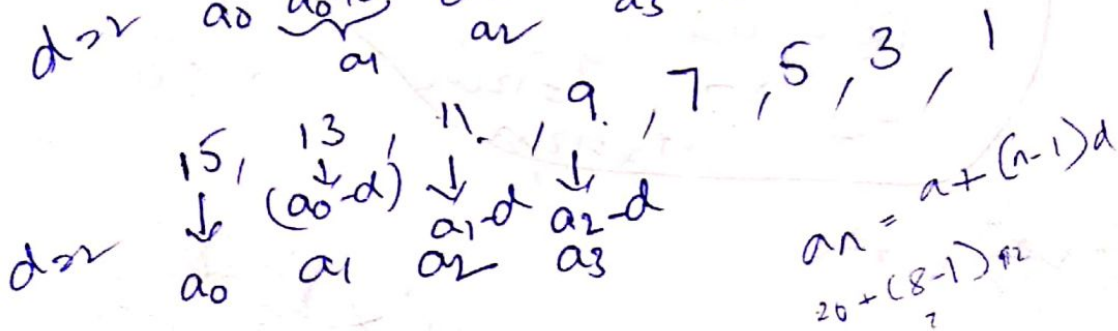 d=2 a0 a0
a1 a2 a3
15, 13, 11, 9, 7, 5, 3, 1
↓ ↓ ↓ ↓
(a0-d) a1-d a2-d
d=2 a0 a1 a2 a3
an = a+(n-1)d
20+(8-1)